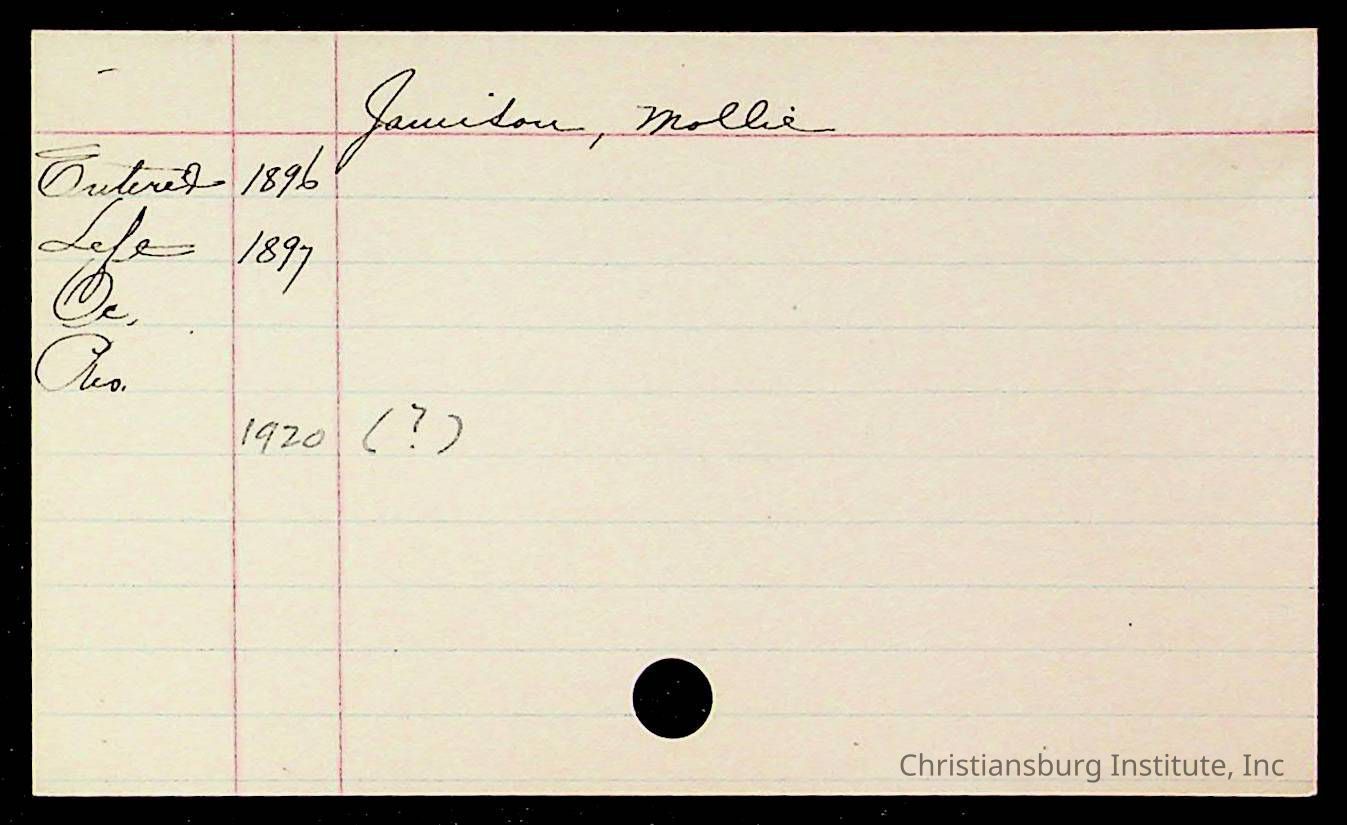 Jamison, Mollie
Entered 1896
Left 1897
Oc.
Res.
1920 (?)
Christiansburg Institute, Inc